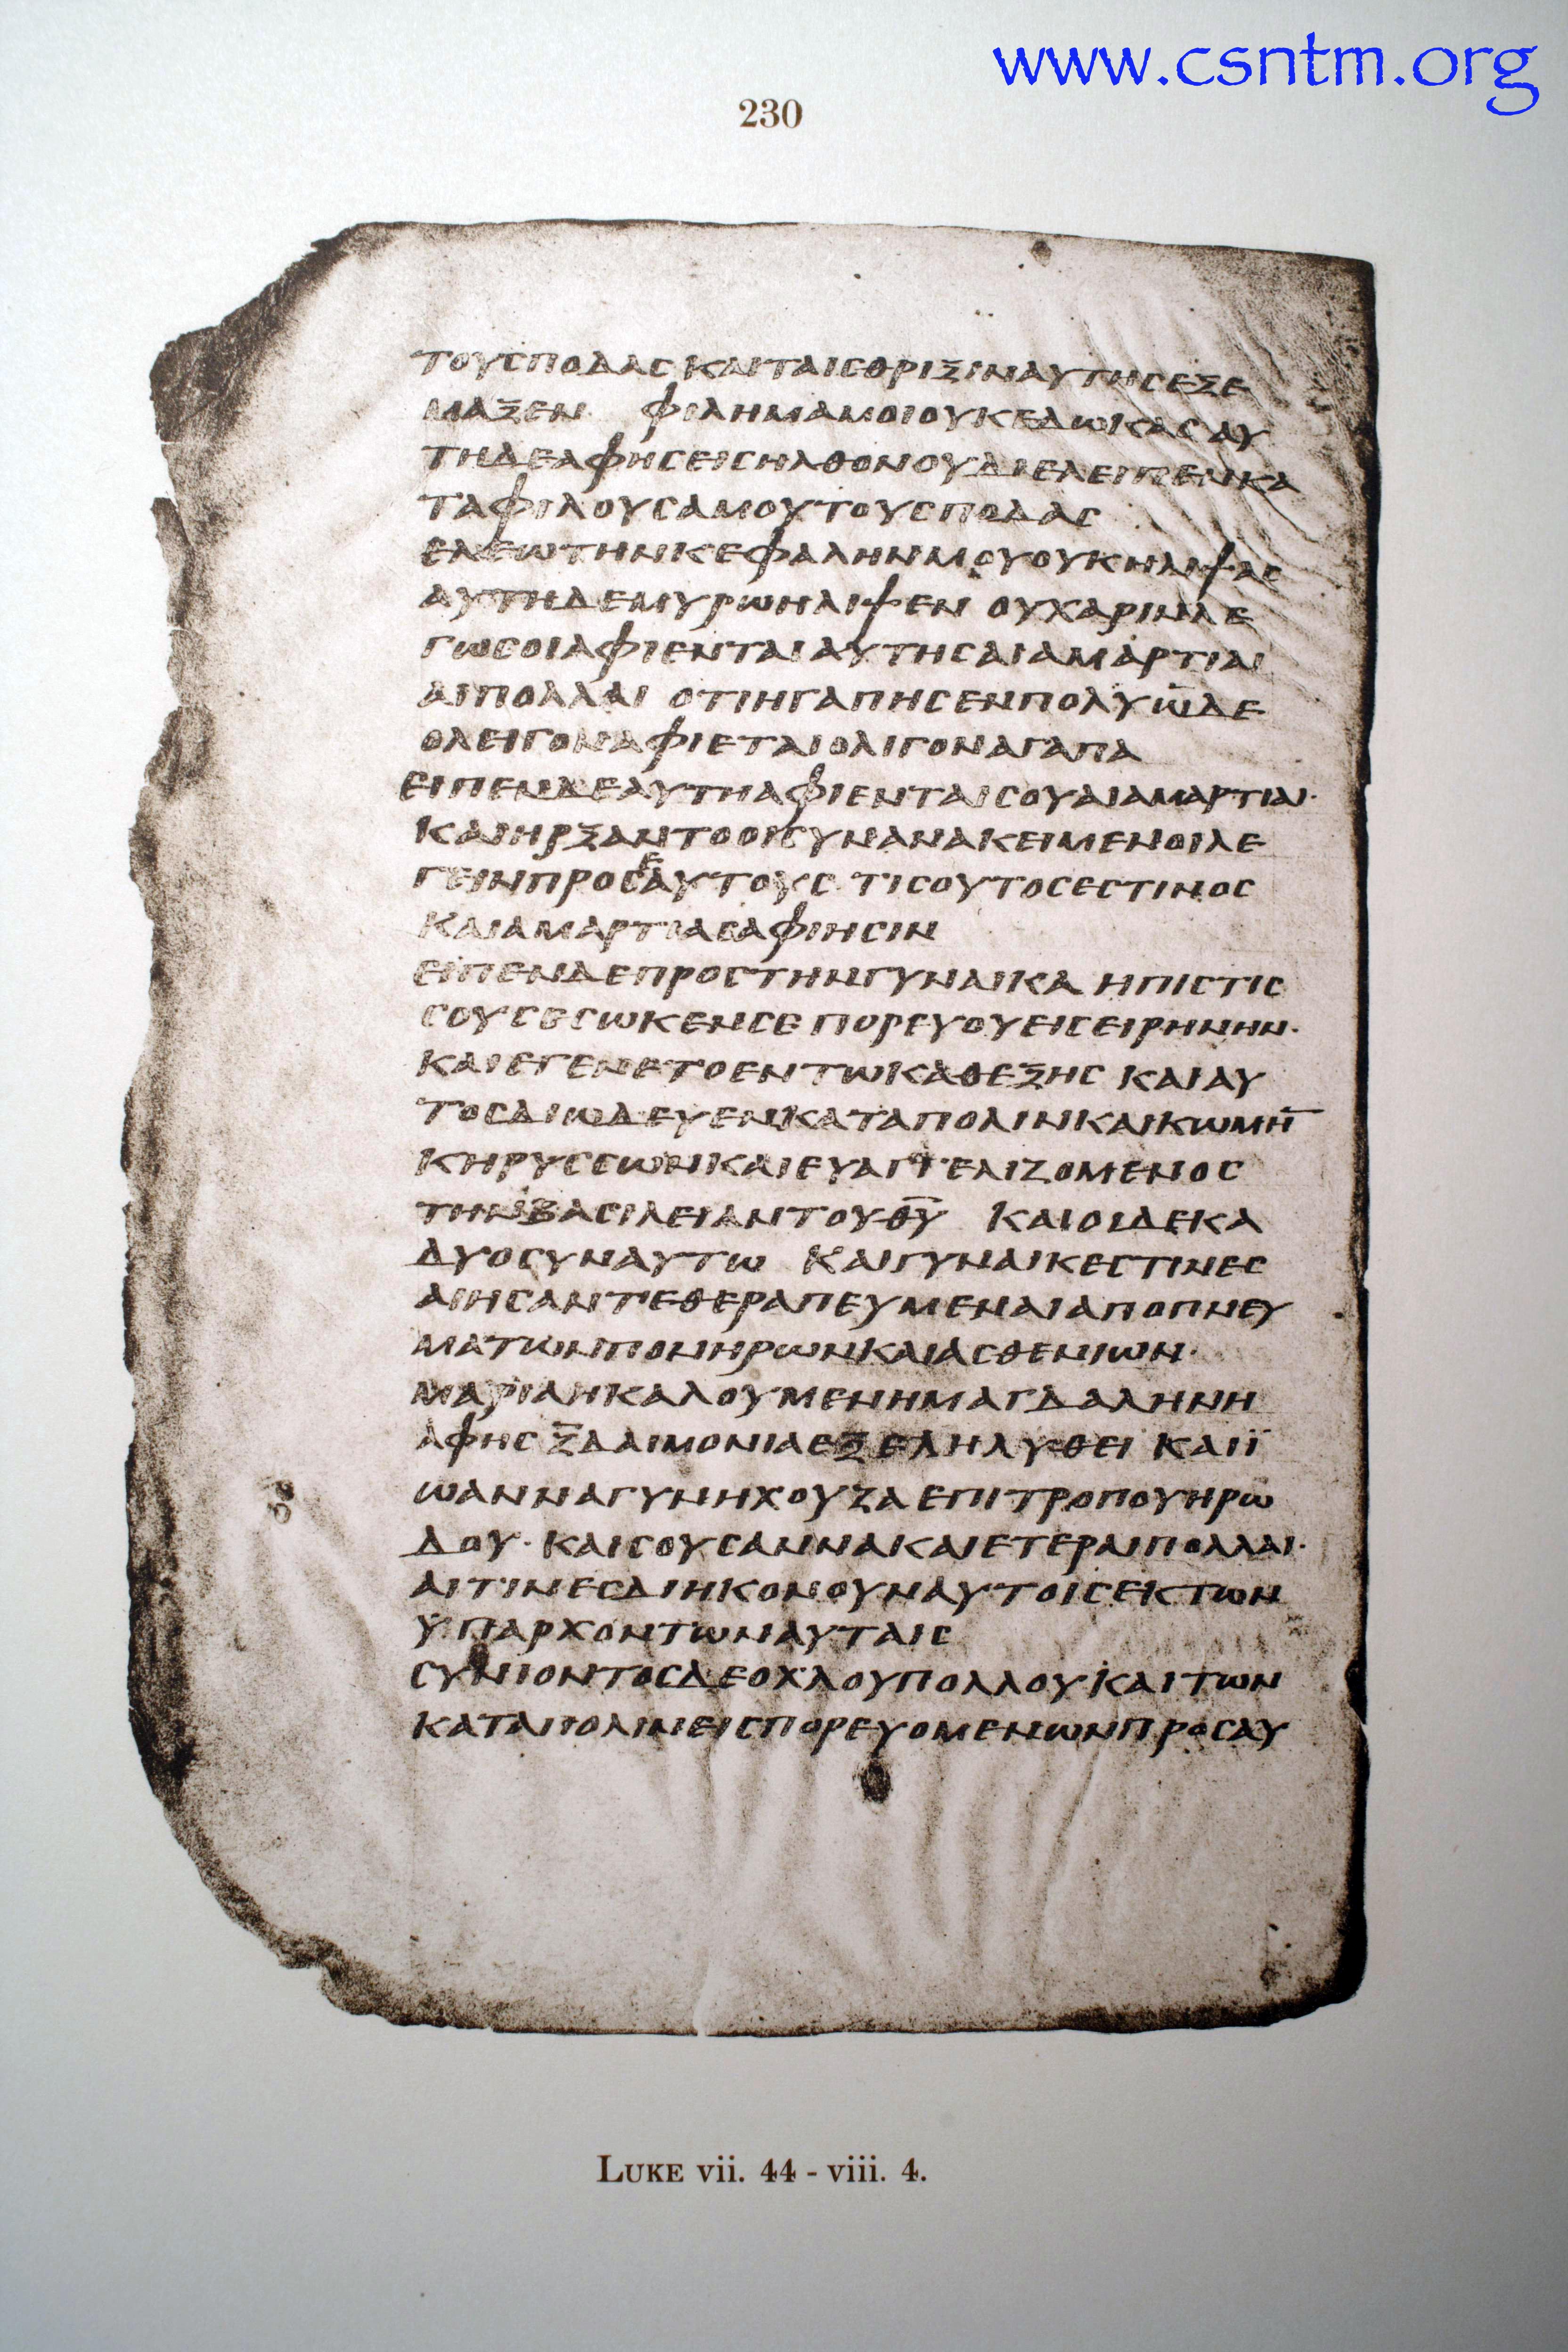 www.csntm.org
230
ΤΟΥСΠΟΔΑСΚΑΙΤΑΙСΘΡΙΞΙΝΑΥΤΗСΕΞΕ
ΜΑΞΕΝ ΦΙΛΗΜΑΜΟΙΟΥΚΕΔΩΚΑС ΑΥ
ΤΗΔΕΑΦΗСΕΙСΗΛΘΟΝΟΥΔΙΕΛΕΙΠΕΝΚΑ
ΤΑΦΙΛΟΥСΑΜΟΥΤΟΥСΠΟΔΑС
ΕΛΕΩΤΗΝΚΕΦΑΛΗΝΜΟΥΟΥΚΗΛΙΨΑС
ΑΥΤΗΔΕΜΥΡΩΗΛΙΨΕΝ ΟΥΧΑΡΙΝΛΕ
ΓΩСΟΙΑΦΙΕΝΤΑΙΑΥΤΗСΑΙΑΜΑΡΤΙΑΙ
ΑΙΠΟΛΛΑΙ ΟΤΙΗΓΑΠΗСΕΝΠΟΛΥ ΩΔΕ
ΟΛΕΙΓΟΝΑΦΙΕΤΑΙΟΛΙΓΟΝΑΓΑΠΑ
ΕΙΠΕΝΔΕΑΥΤΗΑΦΙΕΝΤΑΙСΟΥΑΙΑΜΑΡΤΙΑΙ·
ΚΑΙΗΡΞΑΝΤΟΟΙСΥΝΑΝΑΚΕΙΜΕΝΟΙΛΕ
ΓΕΙΝΠΡΟСΕΑΥΤΟΥС ΤΙСΟΥΤΟСΕСΤΙΝΟС
ΚΑΙΑΜΑΡΤΙΑСΑΦΙΗСΙΝ
ΕΙΠΕΝΔΕΠΡΟСΤΗΝΓΥΝΑΙΚΑ ΗΠΙСΤΙС
СΟΥСΕСΩΚΕΝСΕ ΠΟΡΕΥΟΥΕΙСΕΙΡΗΝΗΝ·
ΚΑΙΕΓΕΝΕΤΟΕΝΤΩΚΑΘΕΞΗС ΚΑΙΑΥ
ΤΟСΔΙΩΔΕΥΕΝΚΑΤΑΠΟΛΙΝΚΑΙΚΩΜΗ̅
ΚΗΡΥССΩΝΚΑΙΕΥΑΓΓΕΛΙΖΟΜΕΝΟС
ΤΗΝΒΑСΙΛΕΙΑΝΤΟΥΘ̅Υ̅ ΚΑΙΟΙΔΕΚΑ
ΔΥΟСΥΝΑΥΤΩ ΚΑΙΓΥΝΑΙΚΕСΤΙΝΕС
ΑΙΗСΑΝΤΕΘΕΡΑΠΕΥΜΕΝΑΙΑΠΟΠΝΕΥ
ΜΑΤΩΝΠΟΝΗΡΩΝΚΑΙΑСΘΕΝΙΩΝ·
ΜΑΡΙΑΗΚΑΛΟΥΜΕΝΗΜΑΓΔΑΛΗΝΗ
ΑΦΗС Ζ̅ΔΑΙΜΟΝΙΑΕΞΕΛΗΛΥΘΕΙ ΚΑΙΪ
ΩΑΝΝΑΓΥΝΗΧΟΥΖΑΕΠΙΤΡΟΠΟΥΗΡΩ
ΔΟΥ· ΚΑΙСΟΥСΑΝΝΑΚΑΙΕΤΕΡΑΙΠΟΛΛΑΙ·
ΑΙΤΙΝΕСΔΙΗΚΟΝΟΥΝΑΥΤΟΙСΕΚΤΩΝ
ΫΠΑΡΧΟΝΤΩΝΑΥΤΑΙС
СΥΝΙΟΝΤΟСΔΕΟΧΛΟΥΠΟΛΛΟΥΚΑΙΤΩΝ
ΚΑΤΑΠΟΛΙΝΕΙСΠΟΡΕΥΟΜΕΝΩΝΠΡΟСΑΥ
LUKE vii. 44 - viii. 4.